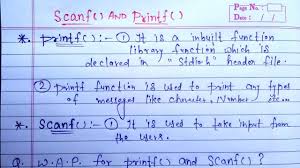 Scanf() AND Printf()
Page No.:
Date: / /
*. printf():- ① It is a inbuilt function
library function which is
declared in "Stdioh" header file.
② printf function is used to print any types
of messages like character, Number etc...
*. Scanf():- ① It is used to take input from
the users.
Q. W.A.P. for printf() and Scanf()?